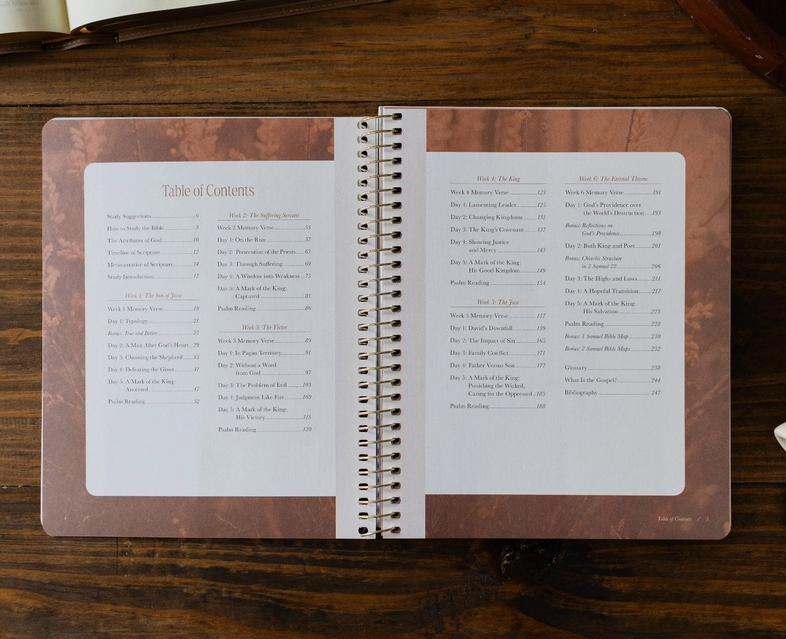 Table of Contents
Study Suggestions 6
How to Study the Bible 8
The Attributes of God 10
Timeline of Scripture 12
Metanarrative of Scripture 14
Study Introduction 17
Week 1: The Son of Jesse
Week 1 Memory Verse 19
Day 1: Typology 21
Bonus: True and Better 27
Day 2: A Man After God's Heart 29
Day 3: Choosing the Shepherd 35
Day 4: Defeating the Giant 41
Day 5: A Mark of the King:
Anointed 47
Psalm Reading 52
Week 2: The Suffering Servant
Week 2 Memory Verse 55
Day 1: On the Run 57
Day 2: Persecution of the Priests 63
Day 3: Through Suffering 69
Day 4: A Window into Weakness 75
Day 5: A Mark of the King:
Captured 81
Psalm Reading 86
Week 3: The Victor
Week 3 Memory Verse 89
Day 1: In Pagan Territory 91
Day 2: Without a Word
from God 97
Day 3: The Problem of Evil 103
Day 4: Judgment Like Fire 109
Day 5: A Mark of the King:
His Victory 115
Psalm Reading 120
Week 4: The King
Week 4 Memory Verse 123
Day 1: Lamenting Leader 125
Day 2: Changing Kingdoms 131
Day 3: The King's Covenant 137
Day 4: Showing Justice
and Mercy 143
Day 5: A Mark of the King:
His Good Kingdom 149
Psalm Reading 154
Week 5: The Just
Week 5 Memory Verse 157
Day 1: David's Downfall 159
Day 2: The Impact of Sin 165
Day 3: Family Conflict 171
Day 4: Father Versus Son 177
Day 5: A Mark of the King:
Punishing the Wicked,
Caring for the Oppressed 183
Psalm Reading 188
Week 6: The Eternal Throne
Week 6 Memory Verse 191
Day 1: God's Providence over
the World's Destruction 193
Bonus: Reflections on
God's Providence 198
Day 2: Both King and Poet 201
Bonus: Chiastic Structure
in 2 Samuel 22 206
Day 3: The Highs and Lows 211
Day 4: A Hopeful Transition 217
Day 5: A Mark of the King:
His Salvation 223
Psalm Reading 228
Bonus: 1 Samuel Bible Map 230
Bonus: 2 Samuel Bible Maps 232
Glossary 238
What Is the Gospel? 244
Bibliography 247
Table of Contents / 5